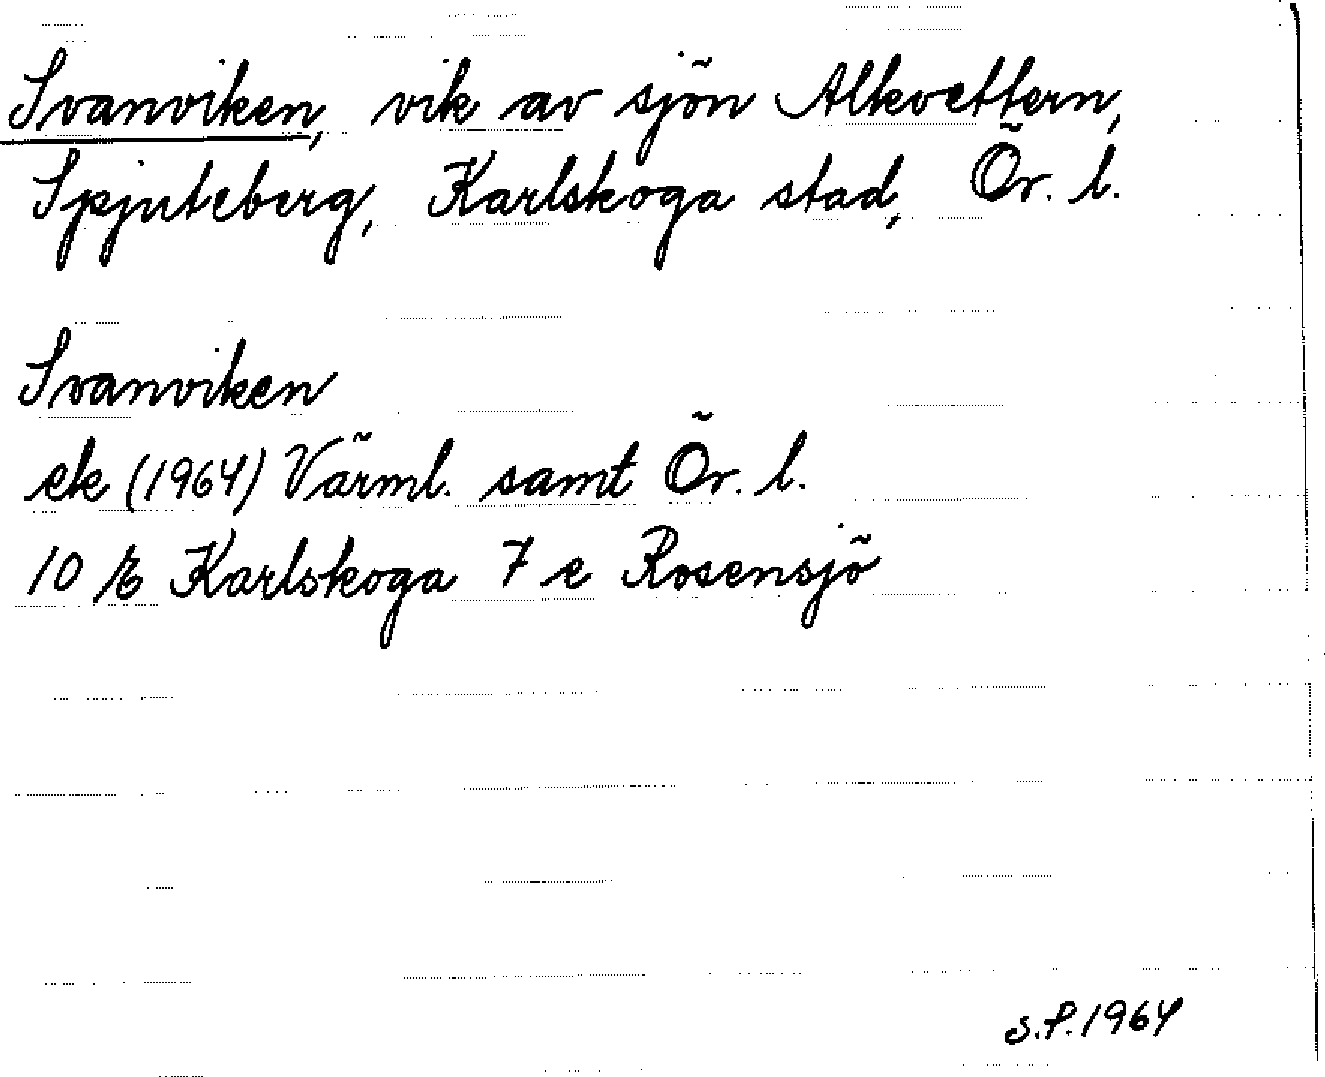 Svanviken, vik av sjön Alkvettern,
Spjuteberg, Karlskoga stad, Ör. l.
Svanviken
ek (1964) Värml. samt Ör. l.
10 E Karlskoga 7 e Rosensjö
S.P. 1964